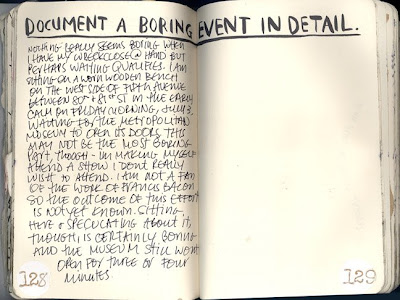 DOCUMENT A BORING EVENT IN DETAIL.
NOTHING REALLY SEEMS BORING WHEN
I HAVE MY WRECK CLOSE @ HAND BUT
PERHAPS WAITING QUALIFIES. I AM
SITTING ON A WORN WOODEN BENCH
ON THE WEST SIDE OF FIFTH AVENUE
BETWEEN 80th & 81st ST IN THE EARLY
CALM ON FRIDAY MORNING, JULY 3,
WAITING FOR THE METROPOLITAN
MUSEUM TO OPEN ITS DOORS. THIS
MAY NOT BE THE MOST BORING
PART, THOUGH - I'M MAKING MYSELF
ATTEND A SHOW I DON'T REALLY
WISH TO ATTEND. I AM NOT A FAN
OF THE WORK OF FRANCIS BACON
SO THE OUTCOME OF THIS EFFORT
IS NOT YET KNOWN. SITTING
HERE & SPECULATING ABOUT IT,
THOUGH, IS CERTAINLY BORING
AND THE MUSEUM STILL WON'T
OPEN FOR THREE OR FOUR
MINUTES
128
129